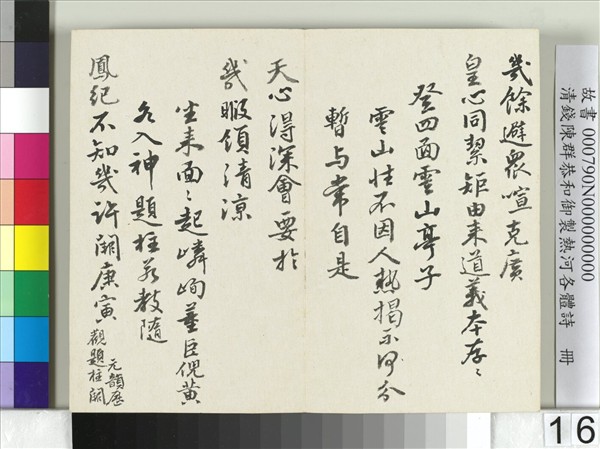 幾餘避衆喧克廣
皇心同絜矩由來道義本存〻
登四面雲山亭子
雲山性不因人熱揭示身分
暫与常自是
天心得深會要於
幾暇領清涼
坐來面〻起嶙峋蓋臣倪黄
各入神題柱若教隨
鳳紀不知幾許闕庚寅
元韻歷
觀題柱闕
故書 000790N000000000
清錢陳群恭和御製熱河各體詩 冊
16